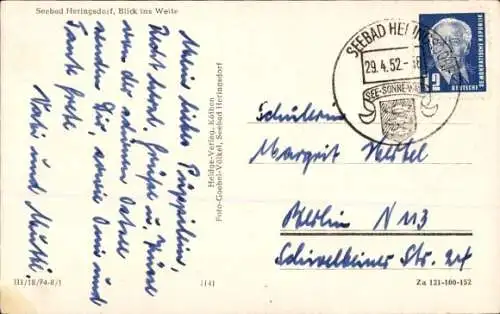 Seebad Heringsdorf, Blick ins Weite
Mein liebes Püppilein,
Recht herzl. Grüße u. Küsse
von
senden Dir, sowie Omi und
Tante Grete
Vati und Mutti.
Heldge-Verlag, Köthen
Foto-Goebel-Völkel, Seebad Heringsdorf
SEEBAD HERINGSDORF
29.4.52
SEE-SONNE-WALD
DEUTSCHE DEMOKRATISCHE REPUBLIK
12
Schülerin
Margrit Hertel
Berlin N 113
Schivelbeiner Str. 24
III/18/94-8/1
J(4)
Za 121-100-152